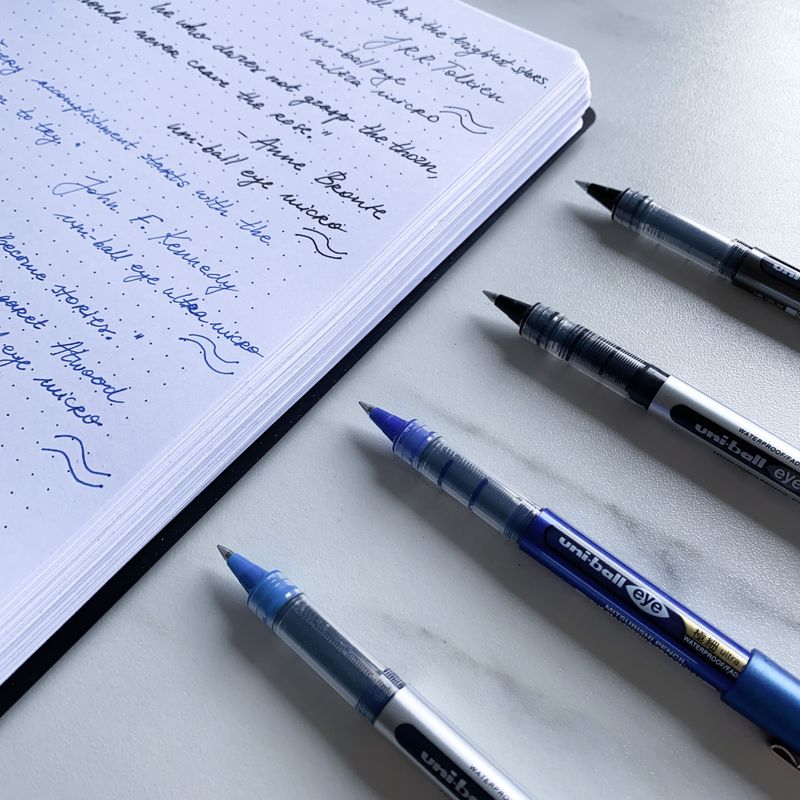 all but the brightest stars
J.R.R. Tolkien
uni-ball eye
ultra micro
he who dares not grasp the thorn,
should never crave the rose."
- Anne Bronte
uni-ball eye micro
every accomplishment starts with the
to try.
John F. Kennedy
uni-ball eye ultra micro
become stories."
Margaret Atwood
eye micro
WATERPROOF/FAD
uni-ball eye
uni-ball eye
MITSUBISHI PENCIL
極細 ultra
WATERPROOF/FAD
WATERPRO
uni-ba